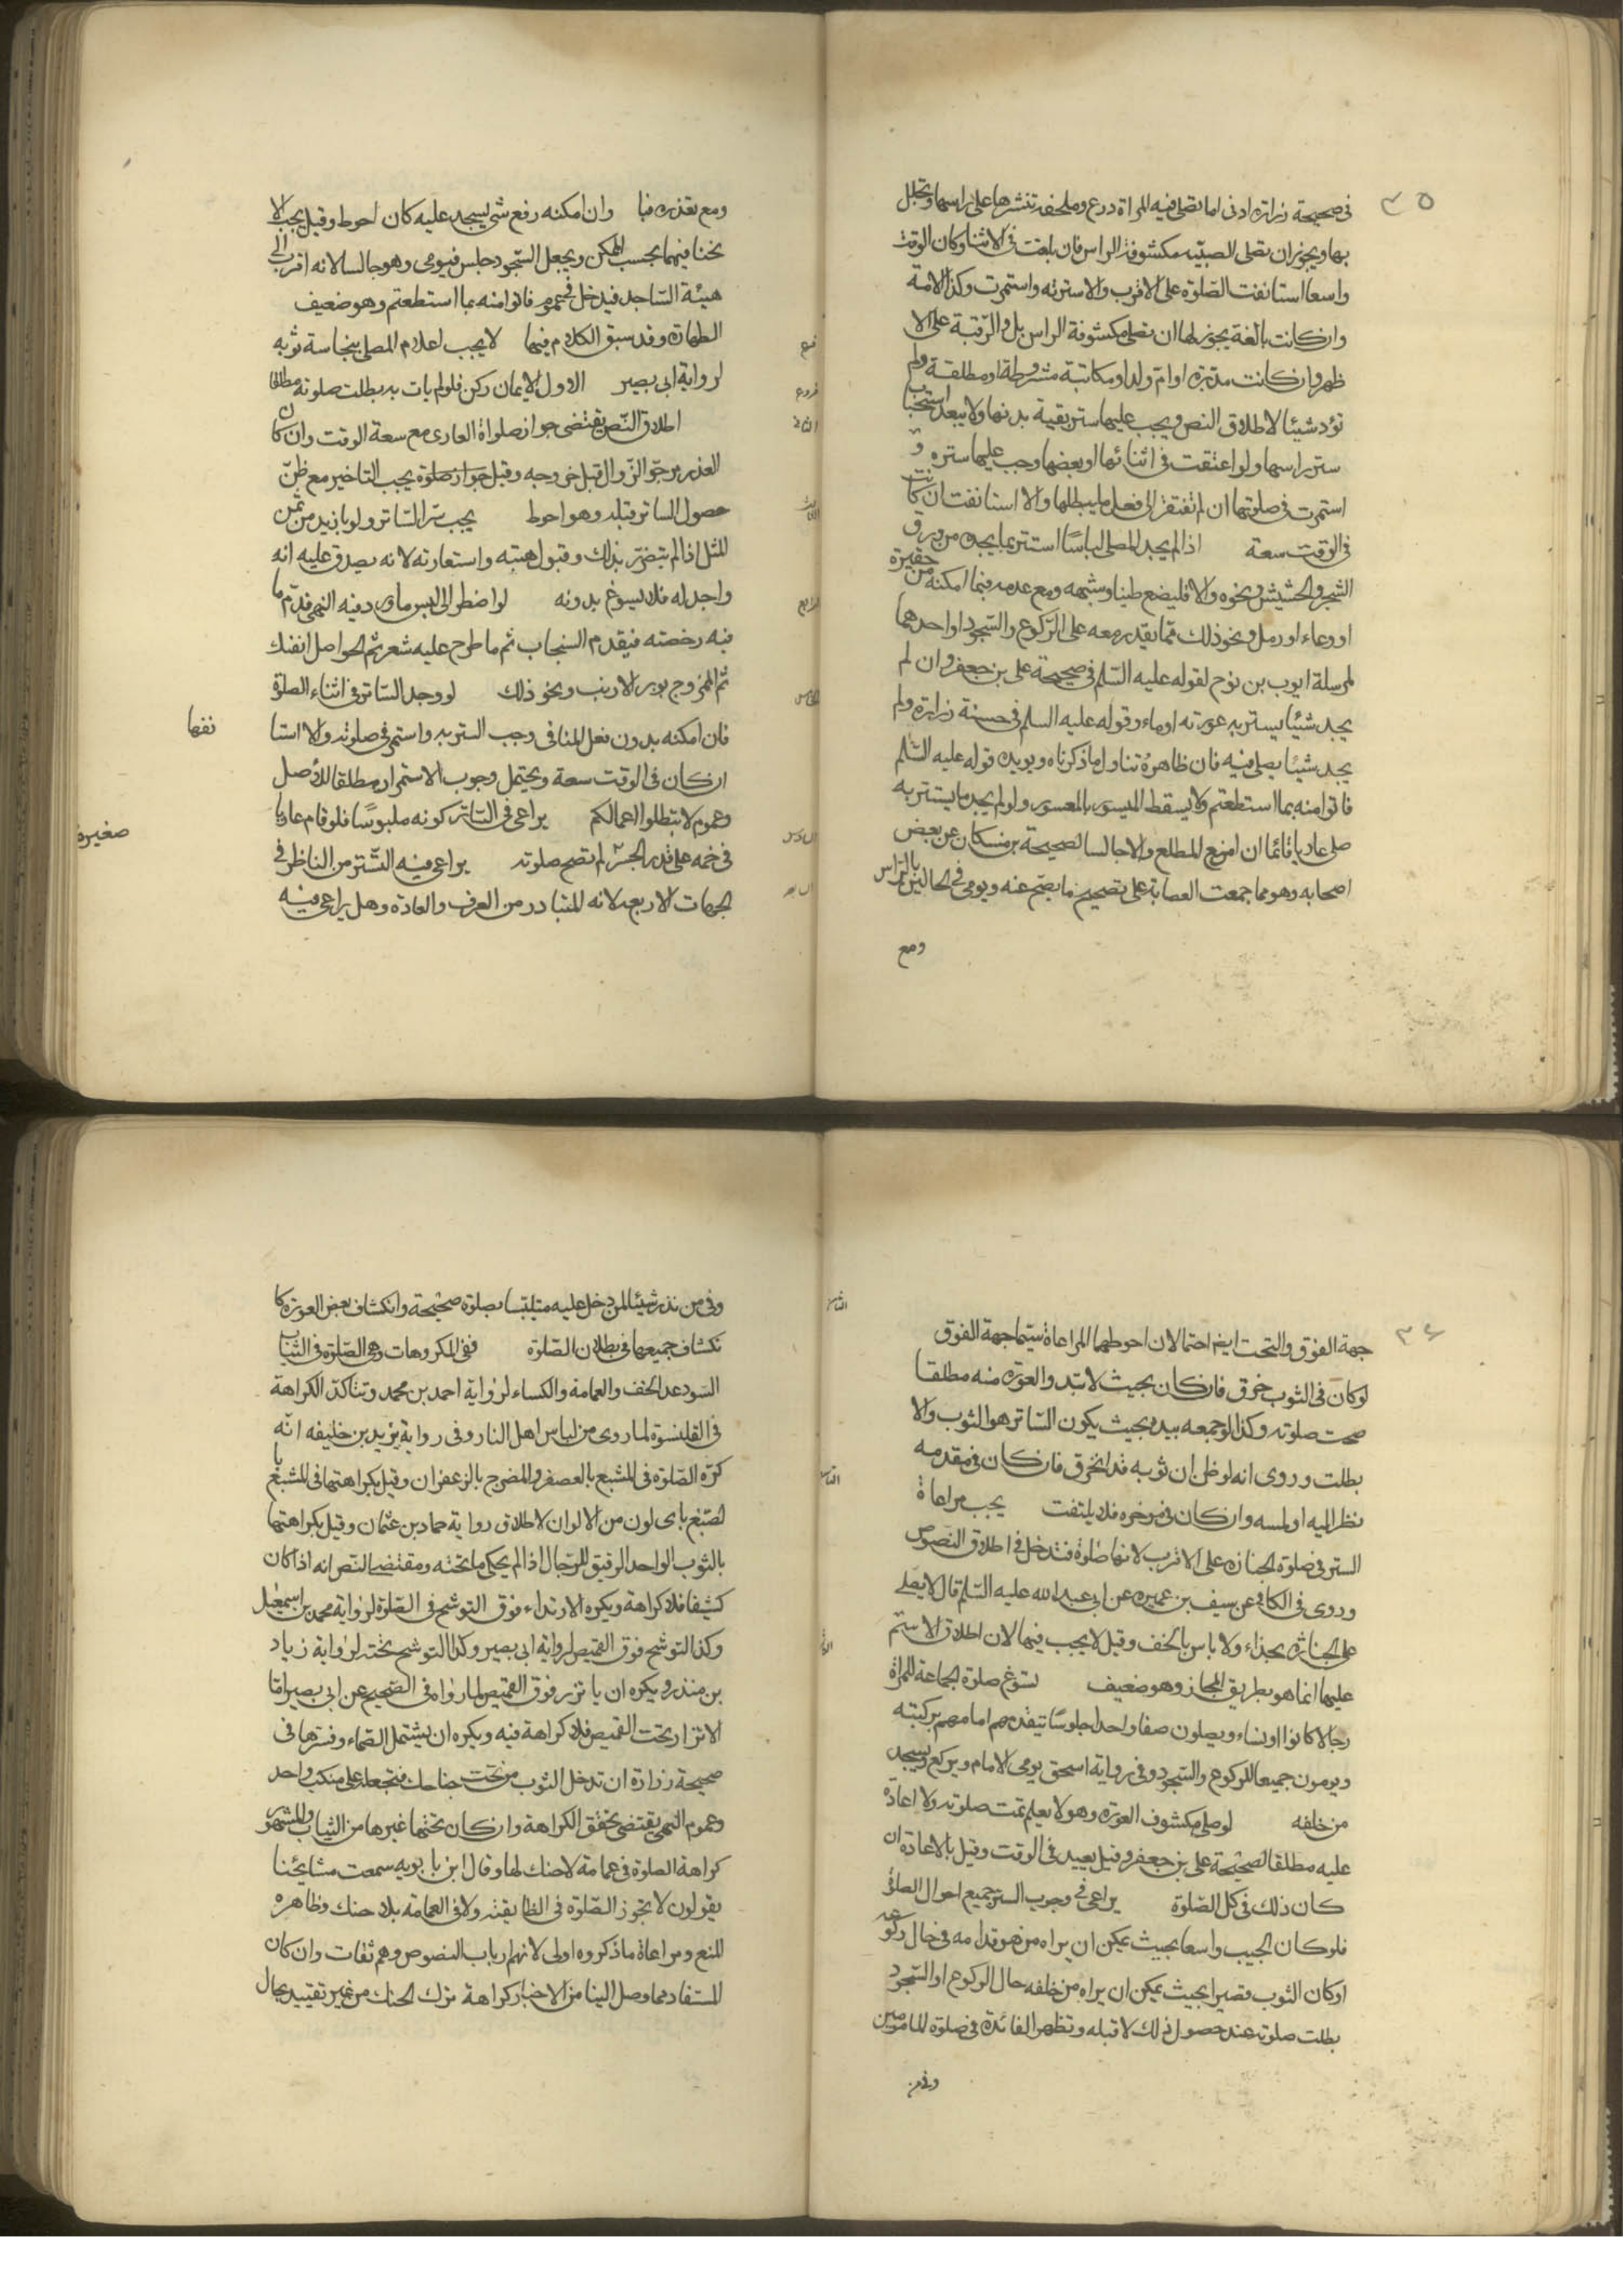 ٣٥
فى صحيحة زرارة ادنى ما تصلى فيه المراة درع وملحفة تنشرها على راسها وتجلل
بها ويجوز ان تصلى الصبيّة مكشوفة الراس فان بلغت فى الاثنا وكان الوقت
واسعا استانفت الصّلوة على الاقرب والا سترته واستمرت وكذا الامة
وان كانت بالغة يجوز لها ان تصلى مكشوفة الراس بل والرّقبة على الا
ظهر وان كانت مدبّرة او امّ ولد او مكاتبة مشروطة او مطلقة ولم
تؤد شيئا لاطلاق النص ويجب عليها ستر بقية بدنها ولا يبعد استحباب
ستر راسها ولو اعتقت فى اثنائها او بعضها وجب عليها ستره و
استمرت فى صلوتها ان لم تفتقر الى فعل ما يبطلها والا استانفت ان كانت
فى الوقت سعة اذا لم يجد المصلى لباسًا استتر بما يجده من ورق
الشجر والحشيش ونحوه والا فليضع طينا وشبهه ومع عدمه فيما امكنه من حفيرة
او وعاء او رمل ونحو ذلك مما يقدر معه على الرّكوع والسّجود او احدهما
لمرسلة ايوب بن نوح لقوله عليه السّلم فى صحيحة على بن جعفر وان لم
يجد شيئا يستر به عورته اوماء وقوله عليه السلم فى حسنة زرارة ولم
يجد شيئا يصلى فيه فان ظاهره تناول ما ذكرناه ويؤيده قوله عليه السّلم
فاتوا منه بما استطعتم ولا يسقط الميسور بالمعسور ولو لم يجد ما يستتر به
صلى عاريا قائما ان امن ع المطلع والا جالسا لصحيحة بن مسكان عن بعض
اصحابه وهو مما جمعت العصابة على تصحيح ما يصح عنه ويومى فى الحالين بالرّاس
ومع
ومع تعذره فبا وان امكنه رفع شئ يسجد عليه كان احوط وقيل يجب الا
نحنا فيهما بحسب الممكن ويجعل السّجود جلس فيومى وهو جالسا لانه اقرب الى
هيئة السّاجد فيدخل فى عموم فاتوا منه بما استطعتم وهو ضعيف
الطهارة وقد سبق الكلام فيها لا يجب اعلام المصلى بنجاسة ثوبه
فرع
لرواية ابى بصير الاول الايمان ركن فلو لم يات به بطلت صلوته مطلقا
فروع
اطلاق النّص يقتضى جواز صلوة العارى مع سعة الوقت وان كان
الثانى
العذر مرجوّ الزّوال قبل خروجه وقيل جواز صلوة يجب التاخير مع ظنّ
حصول الساتر قبله وهو احوط يجب شرا السّاتر ولو بازيد من ثمن
الثالث
المثل اذا لم يتضرّر بذلك وقبول هبته واستعارته لانه يصدق عليه انه
واجد له فلا يسوغ بدونه لو اضطر الى لبس ما ورد فيه النهى قدّم ما
الرابع
فيه رخصته فيقدم السنجاب ثم ما طرح عليه شعر ثم الحواصل الفنك
ثم الممزوج بوبر الارنب ونحو ذلك لو وجد السّاتر فى اثناء الصلوة
الخامس
فان امكنه بدون فعل المنافى وجب الستر به واستمر فى صلوته والا استا
نفها
ان كان فى الوقت سعة ويحتمل وجوب الاستمرار مطلقا للاصل
وعموم لا تبطلوا اعمالكم يراعى فى السّاتر كونه ملبوسًا فلو قام عاريا
السادس
صغيرة
فى خمه على قدر الجسر لم تصح صلوته يراعى فيه السّتر من الناظر فى
السابع
الجهات الاربعه لانه المتبادر من العرف والعادة وهل يراعى فيه
٣٦
جهة الفوق والتحت ايضا احتمالان احوطهما المراعاة سيّما جهة الفوق
الثامن
لو كان فى الثوب خرق فان كان بحيث لا تبدو العورة منه مطلقا
صحت صلوته وكذا لو جمعه بيده بحيث يكون السّاتر هو الثوب والا
بطلت وروى انه لو ظن ان ثوبه قد انخرق فان كان فى مقدمه
نظر اليه او لمسه وان كان فى موخره فلا يلتفت يجب مراعاة
التاسع
الستر فى صلوة الجنازة على الاقرب لانها صلوة فتدخل فى اطلاق النصوص
وروى فى الكافى عن سيف بن عميره عن ابى عبد الله عليه السّلم قال لا يصلى
على الجنازة بحذاء ولا باس بالخف وقيل لا يجب فيها لان اطلاق الاسم
عليها انما هو بطريق المجاز وهو ضعيف تسوغ صلوة الجماعة للعراة
رجالا كانوا او نساء ويصلون صفا واحدا جلوسًا يتقدمهم امامهم بركبتيه
ويومون جميعا للركوع والسّجود وفى رواية اسحق يومى الامام ويركع ويسجد
من خلفه لو صلى مكشوف العورة وهو لا يعلم تمت صلوته ولا اعادة
عليه مطلقا لصحيحة على بن جعفر وقيل يعيد فى الوقت وقيل بالاعادة ان
كان ذلك فى كل الصّلوة يراعى فى وجوب الستر جميع احوال الصلوة
فلو كان الجيب واسعا بحيث يمكن ان يراه من هو قدامه فى حال ركوعه
او كان الثوب قصيرا بحيث يمكن ان يراه من خلفه حال الركوع او السّجود
بطلت صلوته عند حصول ذلك لا قبله وتظهر الفائدة فى صلوة المامومين
وفى من
وفى من نذر شيئا لمن دخل عليه متلبسا بصلوة صحيحة وانكشاف بعض العورة كا
نكشاف جميعها فى بطلان الصّلوة ففى المكروهات وهى الصّلوة فى الثياب
السّود عدا الخف والعمامة والكساء لرواية احمد بن محمد وتتاكد الكراهة
فى القلنسوة لما روى من لباس اهل النار وفى رواية يزيد بن خليفه انّه
كره الصّلوة فى المشبع بالعصفر والمضرج بالزعفران وقيل بكراهتها فى المشبع با
لصّبغ باى لون من الالوان لاطلاق رواية حماد بن عثمان وقيل بكراهتها
بالثوب الواحد الرقيق للرّجال اذا لم يحكى ما تحته ومقتضى النّص انه اذا كان
كثيفا فلا كراهة ويكره الارتداء فوق التوشح فى الصّلوة لرواية محمد بن اسمعيل
وكذا التوشح فوق القميص لرواية ابى بصير وكذا التوشح تحته لرواية زياد
بن منذر ويكره ان ياتزر فوق القميص لما رواه فى الصّحيح عن ابى بصير امّا
الاتزار تحت القميص فلا كراهة فيه ويكره ان يشتمل الصّماء وفسّرها فى
صحيحة زرارة ان تدخل الثوب من تحت جناحك فتجعله على منكب واحد
وعموم النهى يقتضى تحقق الكراهة وان كان تحتها غيرها من الثياب والمشهور
كراهة الصلوة فى عمامة لا حنك لها وقال ابن بابويه سمعت مشايخنا
يقولون لا تجوز الصّلوة فى الطابقية ولا فى العمامة بلا حنك وظاهره
المنع ومراعاة ما ذكروه اولى لانهم ارباب النصوص وهم ثقات وان كان
المستفاد مما وصل الينا من الاخبار كراهة ترك الحنك من غير تقييد بحال